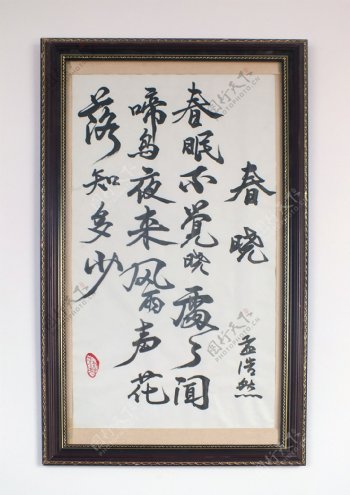 春晓
孟浩然
春眠不觉晓处々闻
啼鸟夜来风雨声花
落知多少